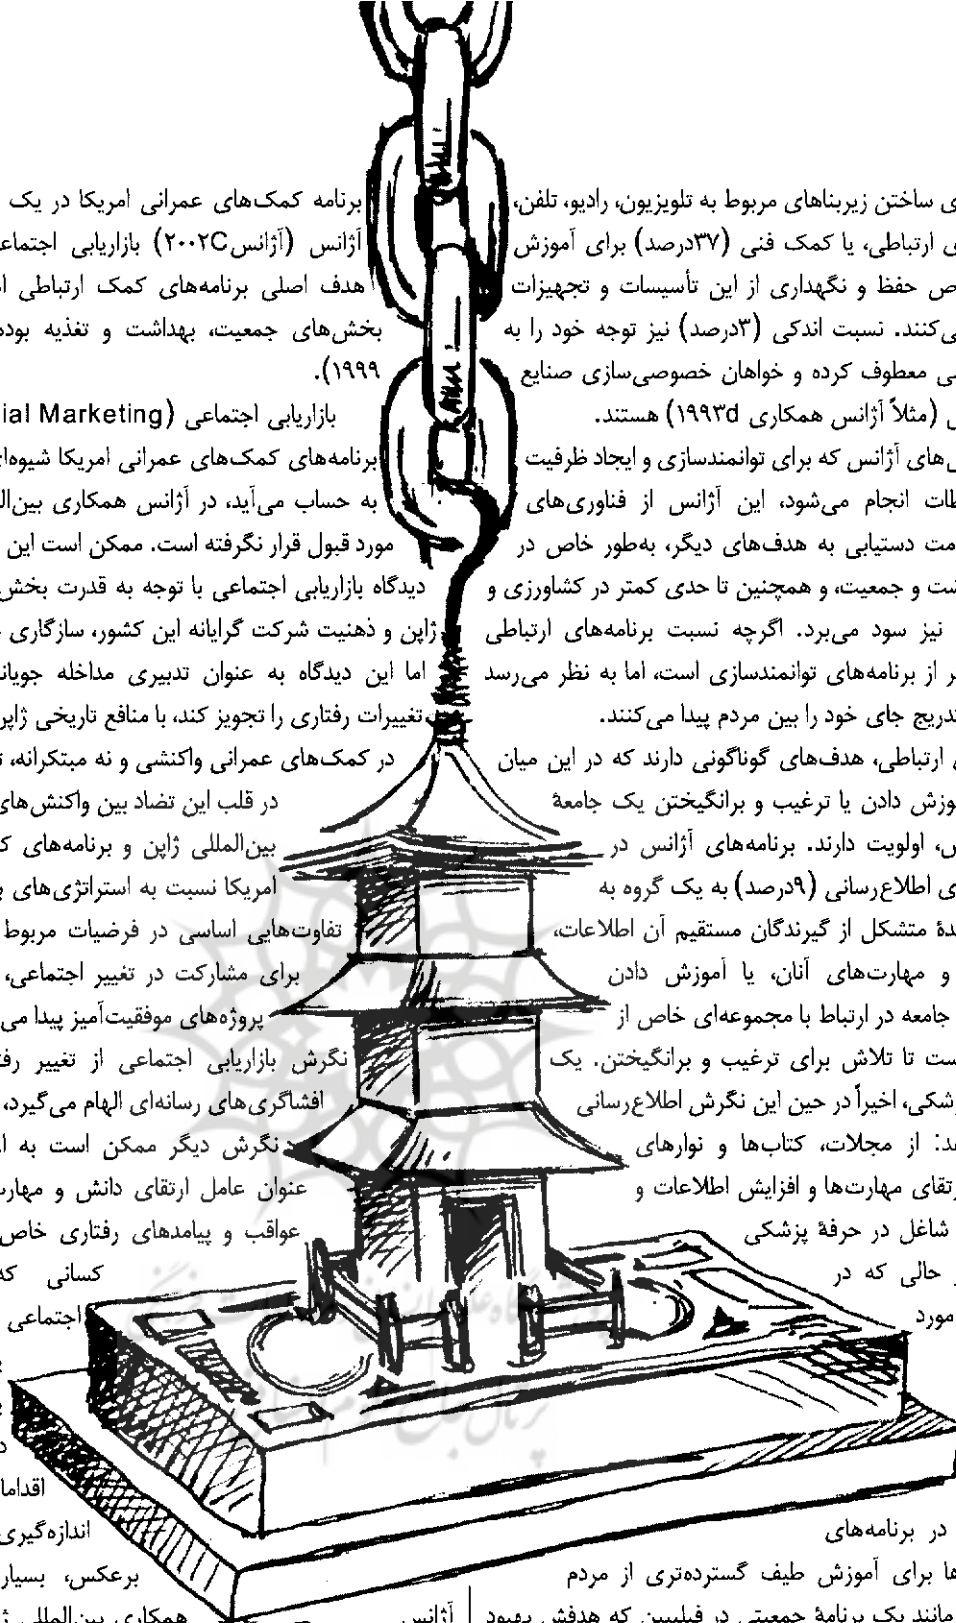 ی ساختن زیربناهای مربوط به تلویزیون، رادیو، تلفن،
ی ارتباطی، یا کمک فنی (۳۷درصد) برای آموزش
ص حفظ و نگهداری از این تأسیسات و تجهیزات
ی‌کنند. نسبت اندکی (۳درصد) نیز توجه خود را به
ی معطوف کرده و خواهان خصوصی‌سازی صنایع
(مثلاً آژانس همکاری ۱۹۹۳d) هستند.
‌های آژانس که برای توانمندسازی و ایجاد ظرفیت
طات انجام می‌شود، این آژانس از فناوری‌های
مت دستیابی به هدف‌های دیگر، به‌طور خاص در
شت و جمعیت، و همچنین تا حدی کمتر در کشاورزی و
نیز سود می‌برد. اگرچه نسبت برنامه‌های ارتباطی
ر از برنامه‌های توانمندسازی است، اما به نظر می‌رسد
تدریج جای خود را بین مردم پیدا می‌کنند.
ارتباطی، هدف‌های گوناگونی دارند که در این میان
وزش دادن یا ترغیب و برانگیختن یک جامعهٔ
اولویت دارند. برنامه‌های آژانس در
ی اطلاع‌رسانی (۹درصد) به یک گروه به
دهٔ متشکل از گیرندگان مستقیم آن اطلاعات،
و مهارت‌های آنان، یا آموزش دادن
جامعه در ارتباط با مجموعه‌ای خاص از
ست تا تلاش برای ترغیب و برانگیختن. یک
زشکی، اخیراً در حین این نگرش اطلاع‌رسانی
د: از مجلات، کتاب‌ها و نوارهای
رتقای مهارت‌ها و افزایش اطلاعات و
شاغل در حرفهٔ پزشکی
حالی که در
مورد
در برنامه‌های
ها برای آموزش طیف گسترده‌تری از مردم
مانند یک برنامهٔ جمعیتی در فیلیپین که هدفش بهبود
برنامه کمک‌های عمرانی امریکا در یک
آژانس (آژانس ۲۰۰۲C) بازاریابی اجتماع
هدف اصلی برنامه‌های کمک ارتباطی ا
بخش‌های جمعیت، بهداشت و تغذیه بود
۱۹۹۹).
بازاریابی اجتماعی (ial Marketing
برنامه‌های کمک‌های عمرانی امریکا شیوه‌ا
به حساب می‌آید، در آژانس همکاری بین‌ال
مورد قبول قرار نگرفته است. ممکن است این
دیدگاه بازاریابی اجتماعی با توجه به قدرت بخش
ژاپن و ذهنیت شرکت گرایانه این کشور، سازگاری
اما این دیدگاه به عنوان تدبیری مداخله جویان
تغییرات رفتاری را تجویز کند، با منافع تاریخی ژاپن
در کمک‌های عمرانی واکنشی و نه مبتکرانه،
در قلب این تضاد بین واکنش‌های
بین‌المللی ژاپن و برنامه‌های ک
امریکا نسبت به استراتژی‌های
تفاوت‌هایی اساسی در فرضیات مربوط
برای مشارکت در تغییر اجتماعی،
پروژه‌های موفقیت‌آمیز پیدا می
نگرش بازاریابی اجتماعی از تغییر رف
افشاگری‌های رسانه‌ای الهام می‌گیرد،
نگرش دیگر ممکن است به ا
عنوان عامل ارتقای دانش و مهار
عواقب و پیامدهای رفتاری خاص
کسانی که
اجتماعی
اقداما
اندازه‌گیری
برعکس، بسیار
همکاری بین‌المللی
آژانس